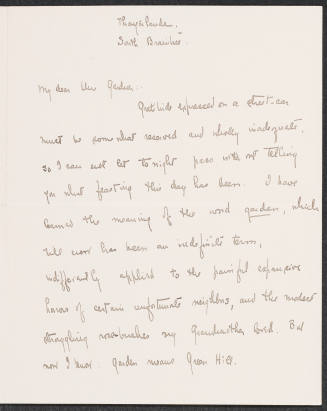 South Braintree.
My dear Mrs Gardner:-
Gratitude expressed on a street-car
must be somewhat reserved and wholly inadequate.
So I can not let to-night pass without telling
you what feasting this day has been. I have
learned the meaning of the word garden, which
till now has been an indefinite term,
indifferently applied to the painful expansive
horrors of certain unfortunate neighbors, and the modest
straggling rose-bushes my Grandmother loved. But
now I know: Garden means Green Hill.